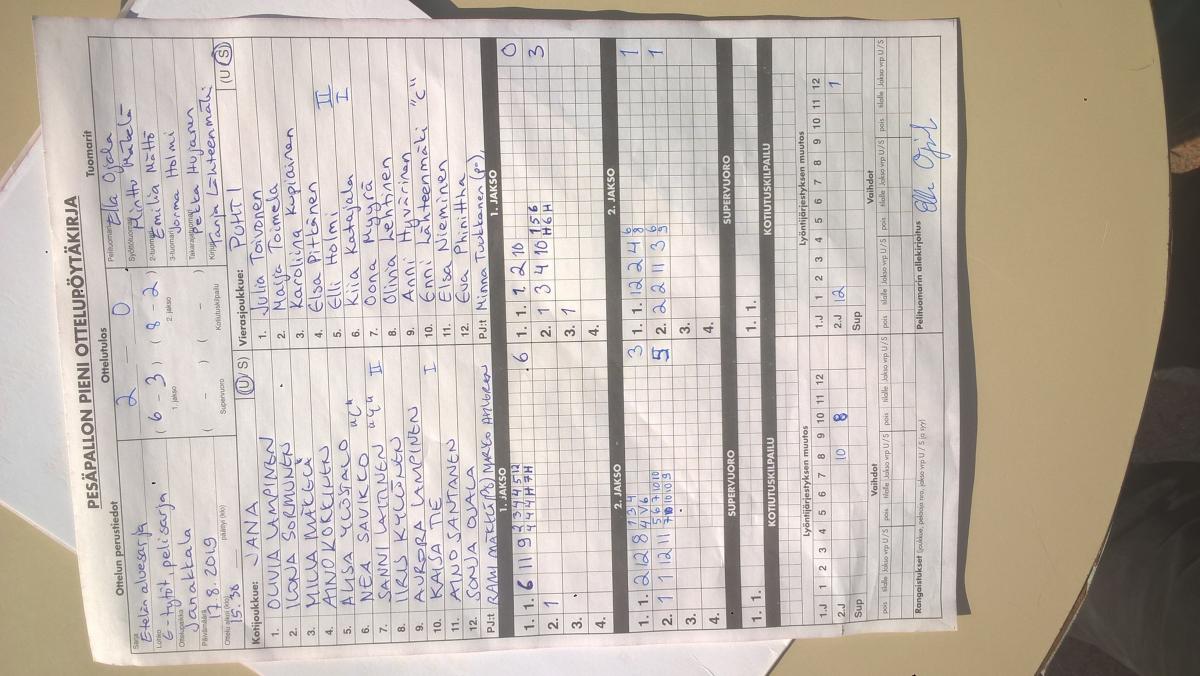 PESÄPALLON PIENI OTTELUPÖYTÄKIRJA
Ottelun perustiedot
Ottelutulos
Tuomarit
Sarja
Etelän aluesarja
Lohko
E-tytöt, pelisarja
Ottelupaikka
Janakkala
Päivämäärä
17.8.2019
Ottelu alkoi (klo)
15.38
päättyi (klo)
2 – 0
( 6 – 3 ) ( 8 – 2 )
1. jakso
2. jakso
( – ) ( – )
Supervuoro
Kotiutuskilpailu
Pelituomari
Ella Ojala
Syöttötuomari
Minttu Mäkelä
2-tuomari
Emilia Mättö
3-tuomari
Jorma Holmi
Takarajatuomari
Pekka Hujanen
Kirjuri
Tanja Lähteenmäki
Kotijoukkue: JANA (U/S)
1. OLIVIA LAMPINEN
2. ILONA SORMUNEN
3. MILLA MÄKELÄ
4. AINO KORKEE
5. ALISA YLÖSTALO "C"
6. NEA SAVIKKO
7. SANNI LAITINEN "4" II
8. IIRIS KYLÖNEN
9. AURORA LAMPINEN
10. KAISA TIE I
11. AINO SANTANEN
12. SONJA OJALA
PJ:t RAMI MÄTTÖ (PJ) MARKO AHLGREN
Vierasjoukkue: POHTI (U/S)
1. Julia Toivonen
2. Maija Toimela
3. Karoliina Kopiainen
4. Elsa Pitkänen II
5. Elli Holmi I
6. Kiia Katajala
7. Oona Myyrä
8. Olivia Lehtinen
9. Anni Hyvärinen
10. Emni Lähteenmäki "C"
11. Elsa Nieminen
12. Eva Phinitha
PJ:t Minna Tuokkanen (PJ),
1. JAKSO
1. JAKSO
1. 1. 6 11 9 2 3 4 4 5 12 6
4 4 4 H 7 H
2. 1
3.
4.
1. 1. 1 2 10 0
2. 1 3 4 10 1 5 6 3
H 6 H
3. 1
4.
2. JAKSO
2. JAKSO
1. 1. 2 12 8 1 3 4 3
4 V 6
2. 1 1 12 11 5 6 7 10 10 5
7 10 10 10 9
3.
4.
1. 1. 12 2 4 6 1
8
2. 2 2 11 3 6 1
9
3.
4.
SUPERVUORO
SUPERVUORO
1. 1.
1. 1.
KOTIUTUSKILPAILU
KOTIUTUSKILPAILU
Lyöntijärjestyksen muutos
Lyöntijärjestyksen muutos
1.J 1 2 3 4 5 6 7 8 9 10 11 12
2.J 10 8
Sup
1.J 1 2 3 4 5 6 7 8 9 10 11 12
2.J 12 1
Sup
Vaihdot
Vaihdot
pois tilalle Jakso vrp U / S pois tilalle Jakso vrp U / S pois tilalle Jakso vrp U / S
pois tilalle Jakso vrp U / S pois tilalle Jakso vrp U / S pois tilalle Jakso vrp U / S
Rangaistukset (joukkue, pelaaja nro, jakso vrp U / S ja syy)
Pelituomarin allekirjoitus